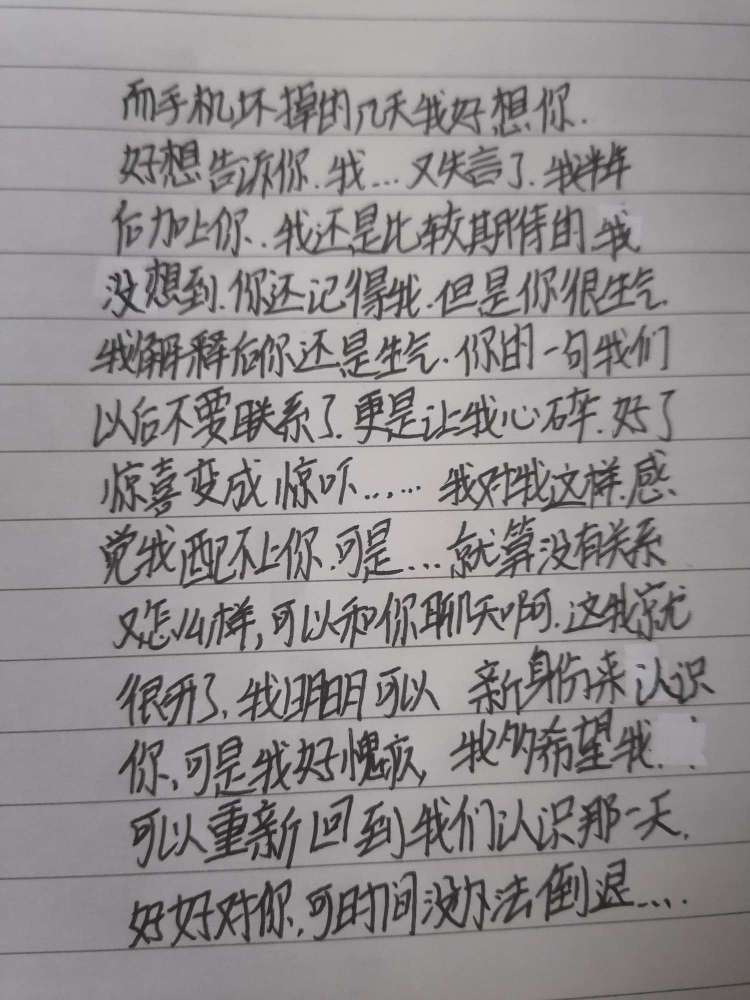 而手机坏掉的几天我好想你.
好想告诉你.我...又失言了.我半年
后加上你..我还是比较期待的我
没想到.你还记得我.但是你很生气.
我解释后你还是生气.你的一句我们
以后不要联系了.更是让我心碎.好了
惊喜变成惊吓...... 我对我这样.感
觉我配不上你.可是...就算没有关系
又怎么样,可以和你聊天啊.这我就
很开了,我明明可以 新身份来认识
你、可是我好愧疚, 我多希望我..
可以重新回到我们认识那一天,
好好对你,可时间没办法倒退....